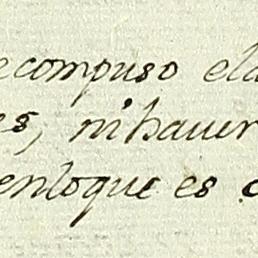 ecompuso ela
es, ni hauer
enloque es